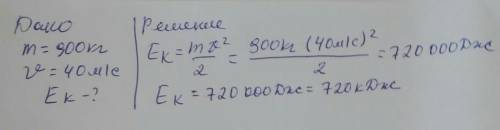 Дано
m = 900кг
v = 40м/с
Eк - ?
Решение
Eк = mv²/2 = 900кг (40м/с)²/2 = 720 000Дж
Eк = 720 000Дж = 720кДж